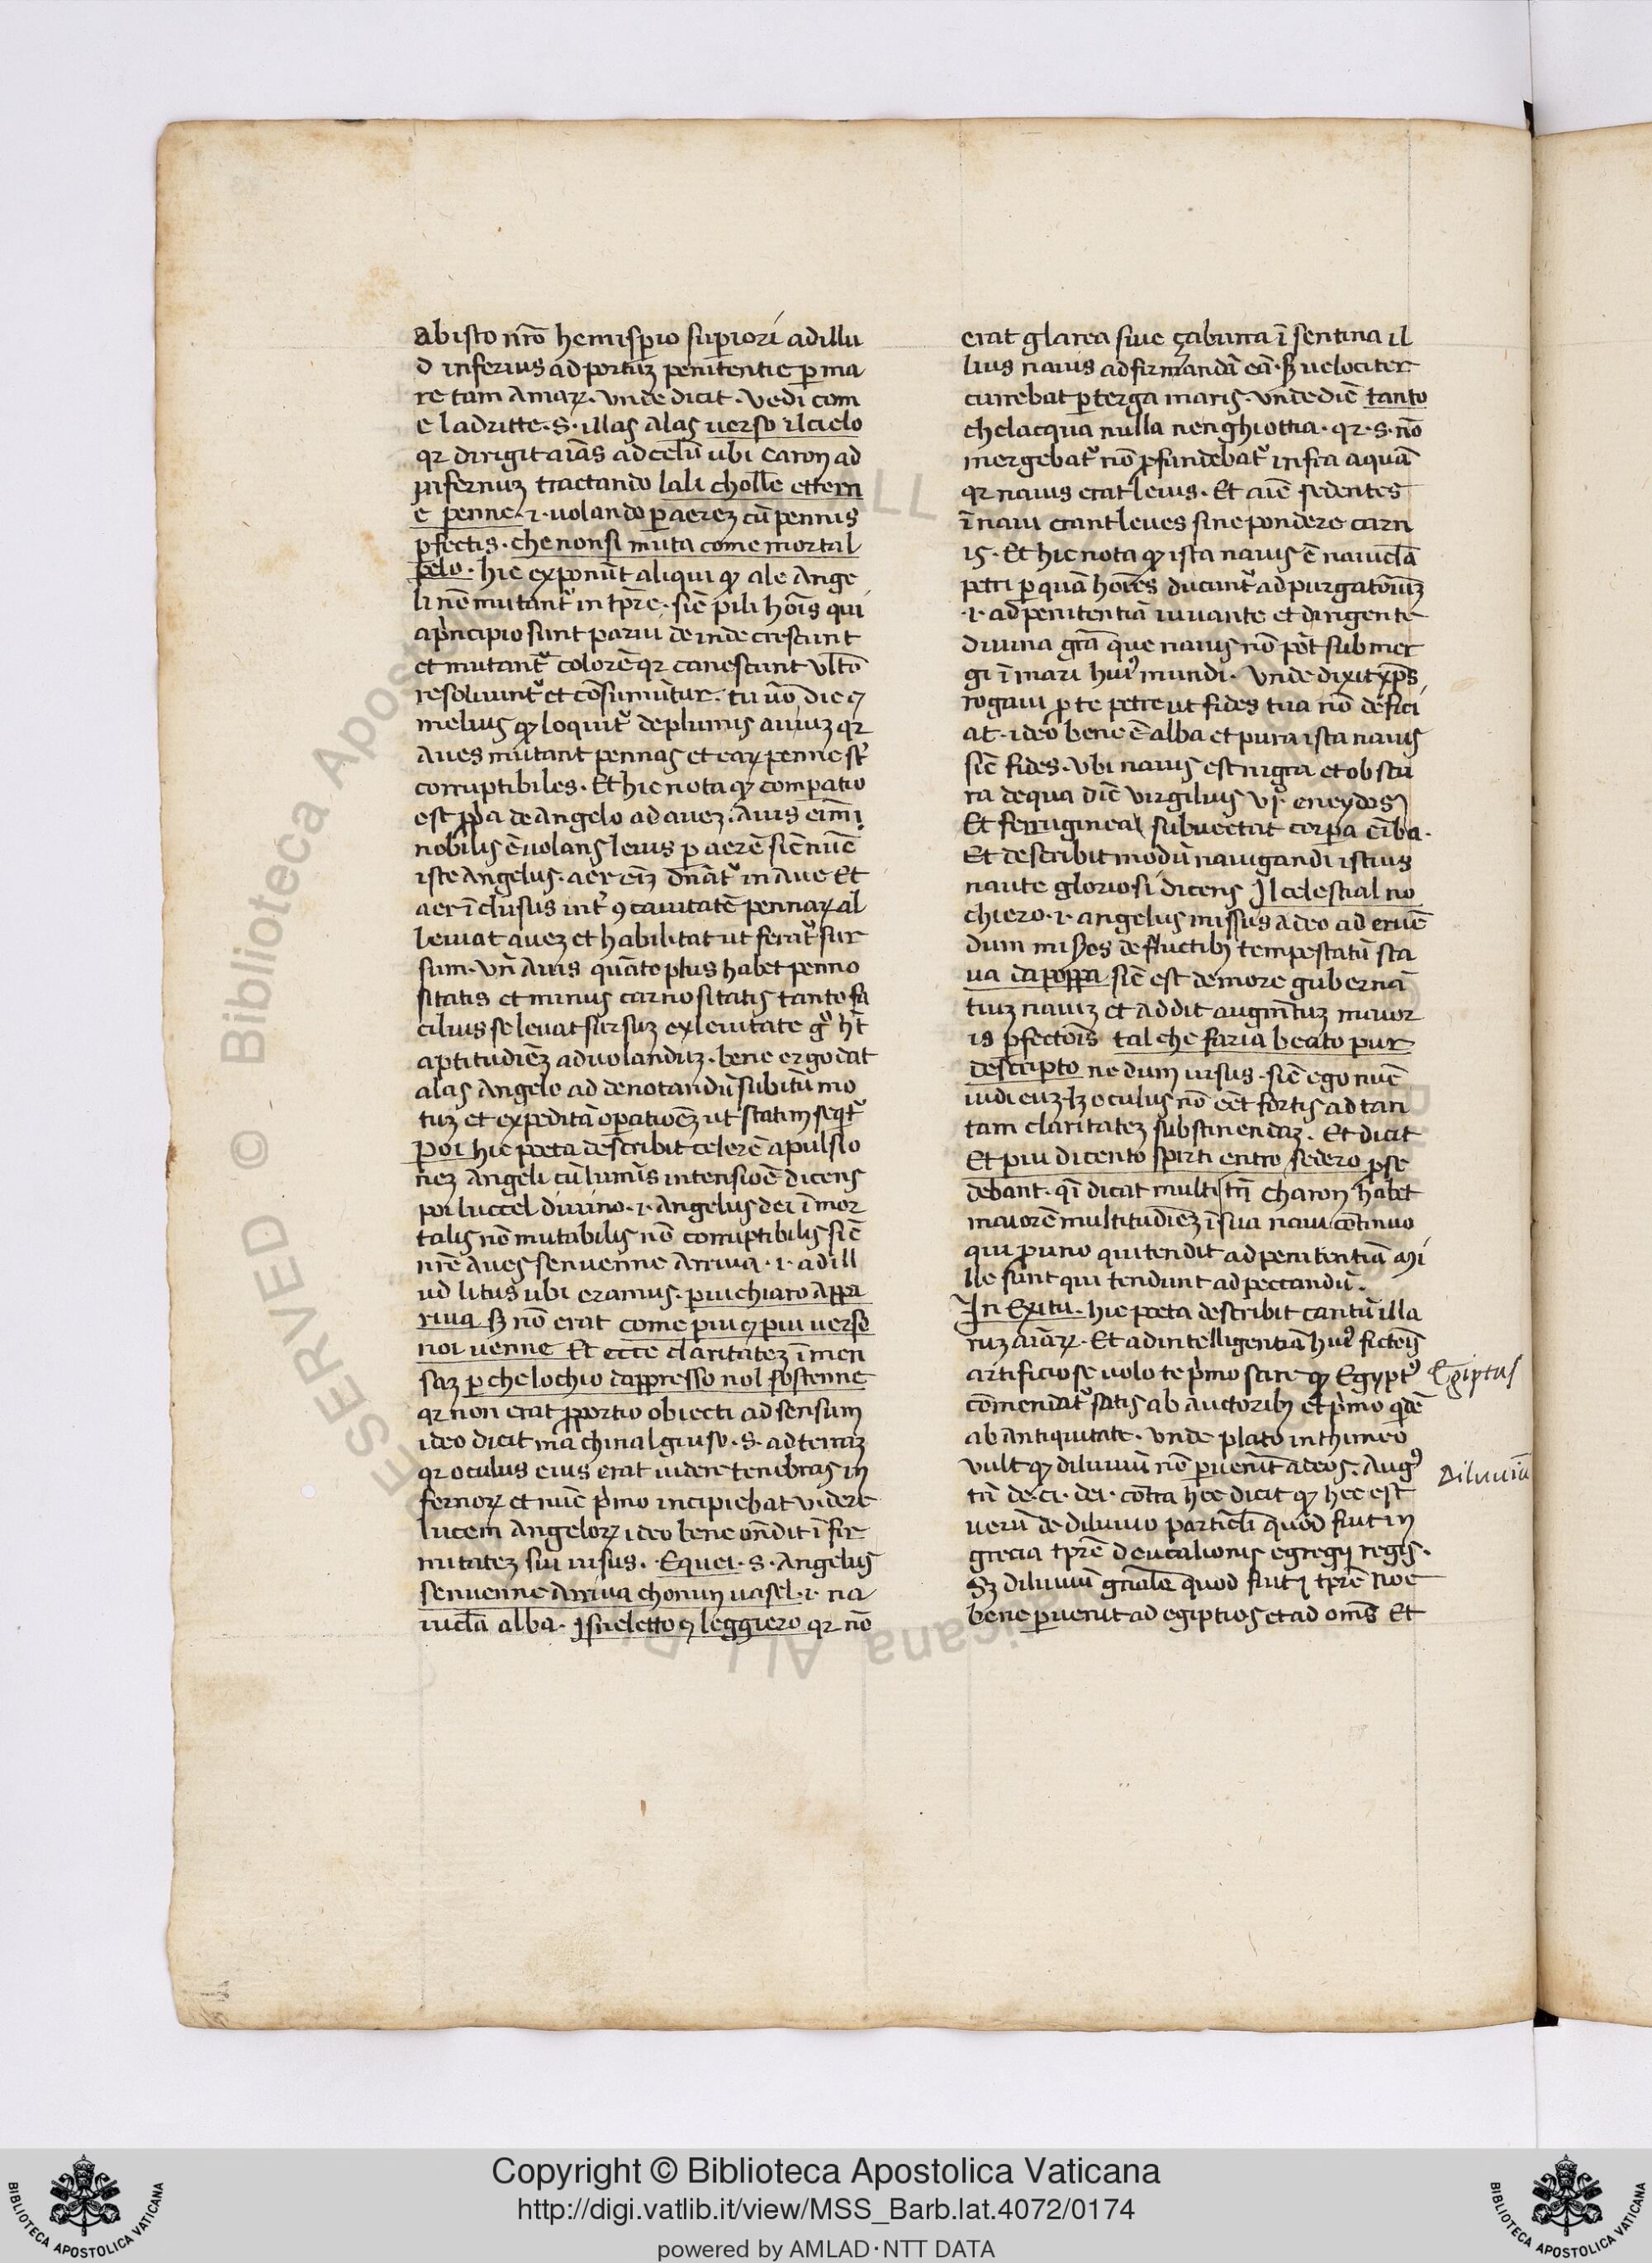 ab isto nr̄o hemisp̄io sup̄iori ad illu
d inferius ad portuꝫ penitentie ꝑ ma
re tam amaꝝ. vnde dicit. Vedi com
e ladritte. S. illas alas uerso il cielo
qꝛ dirigit aīas ad celū ubi caron ad
infernuꝫ tractando lali cholle ettern
e penne .i. uolando ꝑ aereꝫ cū pennis
ꝑfectis. che non si muta come mortal
pelo. hic exponūt aliqui qꝙ ale Ange
li nō mutant᷑ in tp̄re. sic̄ pili hoīs qui
a principio sunt parui deinde crescunt
et mutant᷑ colorē qꝛ canescunt vlt̄o
resoluunt᷑ et cōsumūtur. tu ūo dic ꝙ
melius qꝙ loquit᷑ de plumis auiuꝫ qꝛ
Aues mutant pennas et eaꝝ penne st̄
corruptibiles. Et hic nota qꝙ comp̄atio
est pp̄a de Angelo ad aueꝫ. Auis eīm
nobilis ē uolans leuis ꝑ aerē sic̄ nūc
iste Angelus. aer eīꝫ dn̄at᷑ in Aue Et
aer īclusus int̄ ꝯcauitatē pennaꝝ al
leuiat aueꝫ et habilitat ut ferat᷑ sur
sum. vn̄ Auis quāto plus habet penno
sitatis et minus carnositatis tanto fa
cilius se leuat sursuꝫ ex leuitate gͦ ht̄
aptitudīeꝫ ad uolanduꝫ. bene ergo dat
alas Angelo ad denotandū subitū mo
tuꝫ et expeditā op̄ationeꝫ ut statim seqt᷑
Poi hic poeta describit celerē apulsio
neꝫ Angeli cū lumīs intensiōe dicens
poi luccel diuino .i. Angelus dei īmor
talis nō mutabilis nō corruptibilis sic̄
nr̄e Aues senuenne Arriua .i. ad ill
ud litus ubi eramus. piu chiaro Appa
riua sꝫ nō erat come piu ꝙ piu uerso
noi uenne Et ecce claritateꝫ īmen
saꝫ ꝑ che lochio dappresso nol sostenne
qꝛ non erat ꝓportio obiecti ad sensum
ideo dicit ma chinal giuso. S. ad terraꝫ
qꝛ oculus eius erat uidere tenebras in
fernoꝝ et nūc p̄mo incipiebat videre
lucem Angeloꝝ ideo bene ōndit īfir
mitateꝫ sui uisus. Equei. S. Angelus
senuenne Arriua chon un uasel .i. na
uicl̄a alba. Isneletto ꝙ leggiero qꝛ nō
erat glarea siue çaburra ī sentina il
lius nauis ad firmandā eā. sꝫ uelociter
currebat ꝑ terga maris. vnde dic̄ tanto
che lacqua nulla nenghiottia. qꝛ. S. nō
mergebat᷑ nō ꝓfundebat᷑ infra aquā
qꝛ nauis erat leuis. Et aīe sedentes
ī naui erant leues sine pondere carn
is. Et hic nota qꝙ ista nauis ē nauicl̄a
petri ꝑ quā hoīes ducunt᷑ ad purgatoriuꝫ
.i. ad penitentiā iuuante et dirigente
diuina gr̄a que nauis nō pōt submer
gi ī mari huiꝰ mundi. Vnde dixit xp̄s
rogaui ꝓ te petre ut fides tua nō defici
at. ideo bene ē alba et pura ista nauis
sic̄ fides. vbi nauis est nigra et obscu
ra de qua dic̄ virgilius vj. eneydos
Et ferruginea subuectat corp̄a cība.
Et describit modū nauigandi istius
naute gloriosi dicens Il celestial no
chiero .i. angelus missus a deo ad eruē
dum miseros de fluctibꝫ tempestatū sta
ua da poppa sic̄ est de more gubernā
tiuꝫ nauiꝫ et addit augm̄tuꝫ maior
is ꝑfectiōīs tal che faria beato pur
descripto nedum uisus. sic̄ ego nūc
uidi euꝫ. sꝫ oculus nō eēt fortis ad tan
tam claritateꝫ substinendaꝫ. Et dicit
Et piu di cento spirti entro sedero ꝑ se
debant. qͥ dicat multi tn̄ charon habet
maiorē multitudīeꝫ ī sua naui cōtinuo
qui ꝓ uno qui tendit ad penitentiā Mi
lle sunt qui tendunt ad peccandū.
In Exitu. hic poeta describit cantū illa
ruꝫ aīaꝝ. Et ad intelligentiā huiꝰ fictōis
artificiose uolo te p̄mo scire qꝙ Egyptꝰ
cōmendat᷑ satis ab auctoribꝫ et p̄mo qͥdē
ab antiquitate. Vnde plato in thimeo
vult qꝙ diluuiū nō ꝑuenit ad eos. Augꝰ
tn̄ de. ci. dei. contra hec dicit qꝙ hec est
uerū de diluuio particl̄i quod fuit in
grecia tp̄re deucalionis egregij regis.
Sꝫ diluuiū gn̄ale quod fuit ꝫ tp̄re Noe
bene ꝑuenit ad egiptios et ad om̄s Et
Egiptus
Diluuiū
Copyright © Biblioteca Apostolica Vaticana
http://digi.vatlib.it/view/MSS_Barb.lat.4072/0174
powered by AMLAD·NTT DATA
BIBLIOTECA APOSTOLICA VATICANA
BIBLIOTECA APOSTOLICA VATICANA